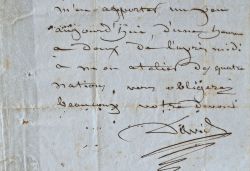 m'en apporter un peu
aujourd'hui, d'une heure
a deux de l'après midi
a mon atelier des quatre
nations, vous obligerez
beaucoup votre devoué
David